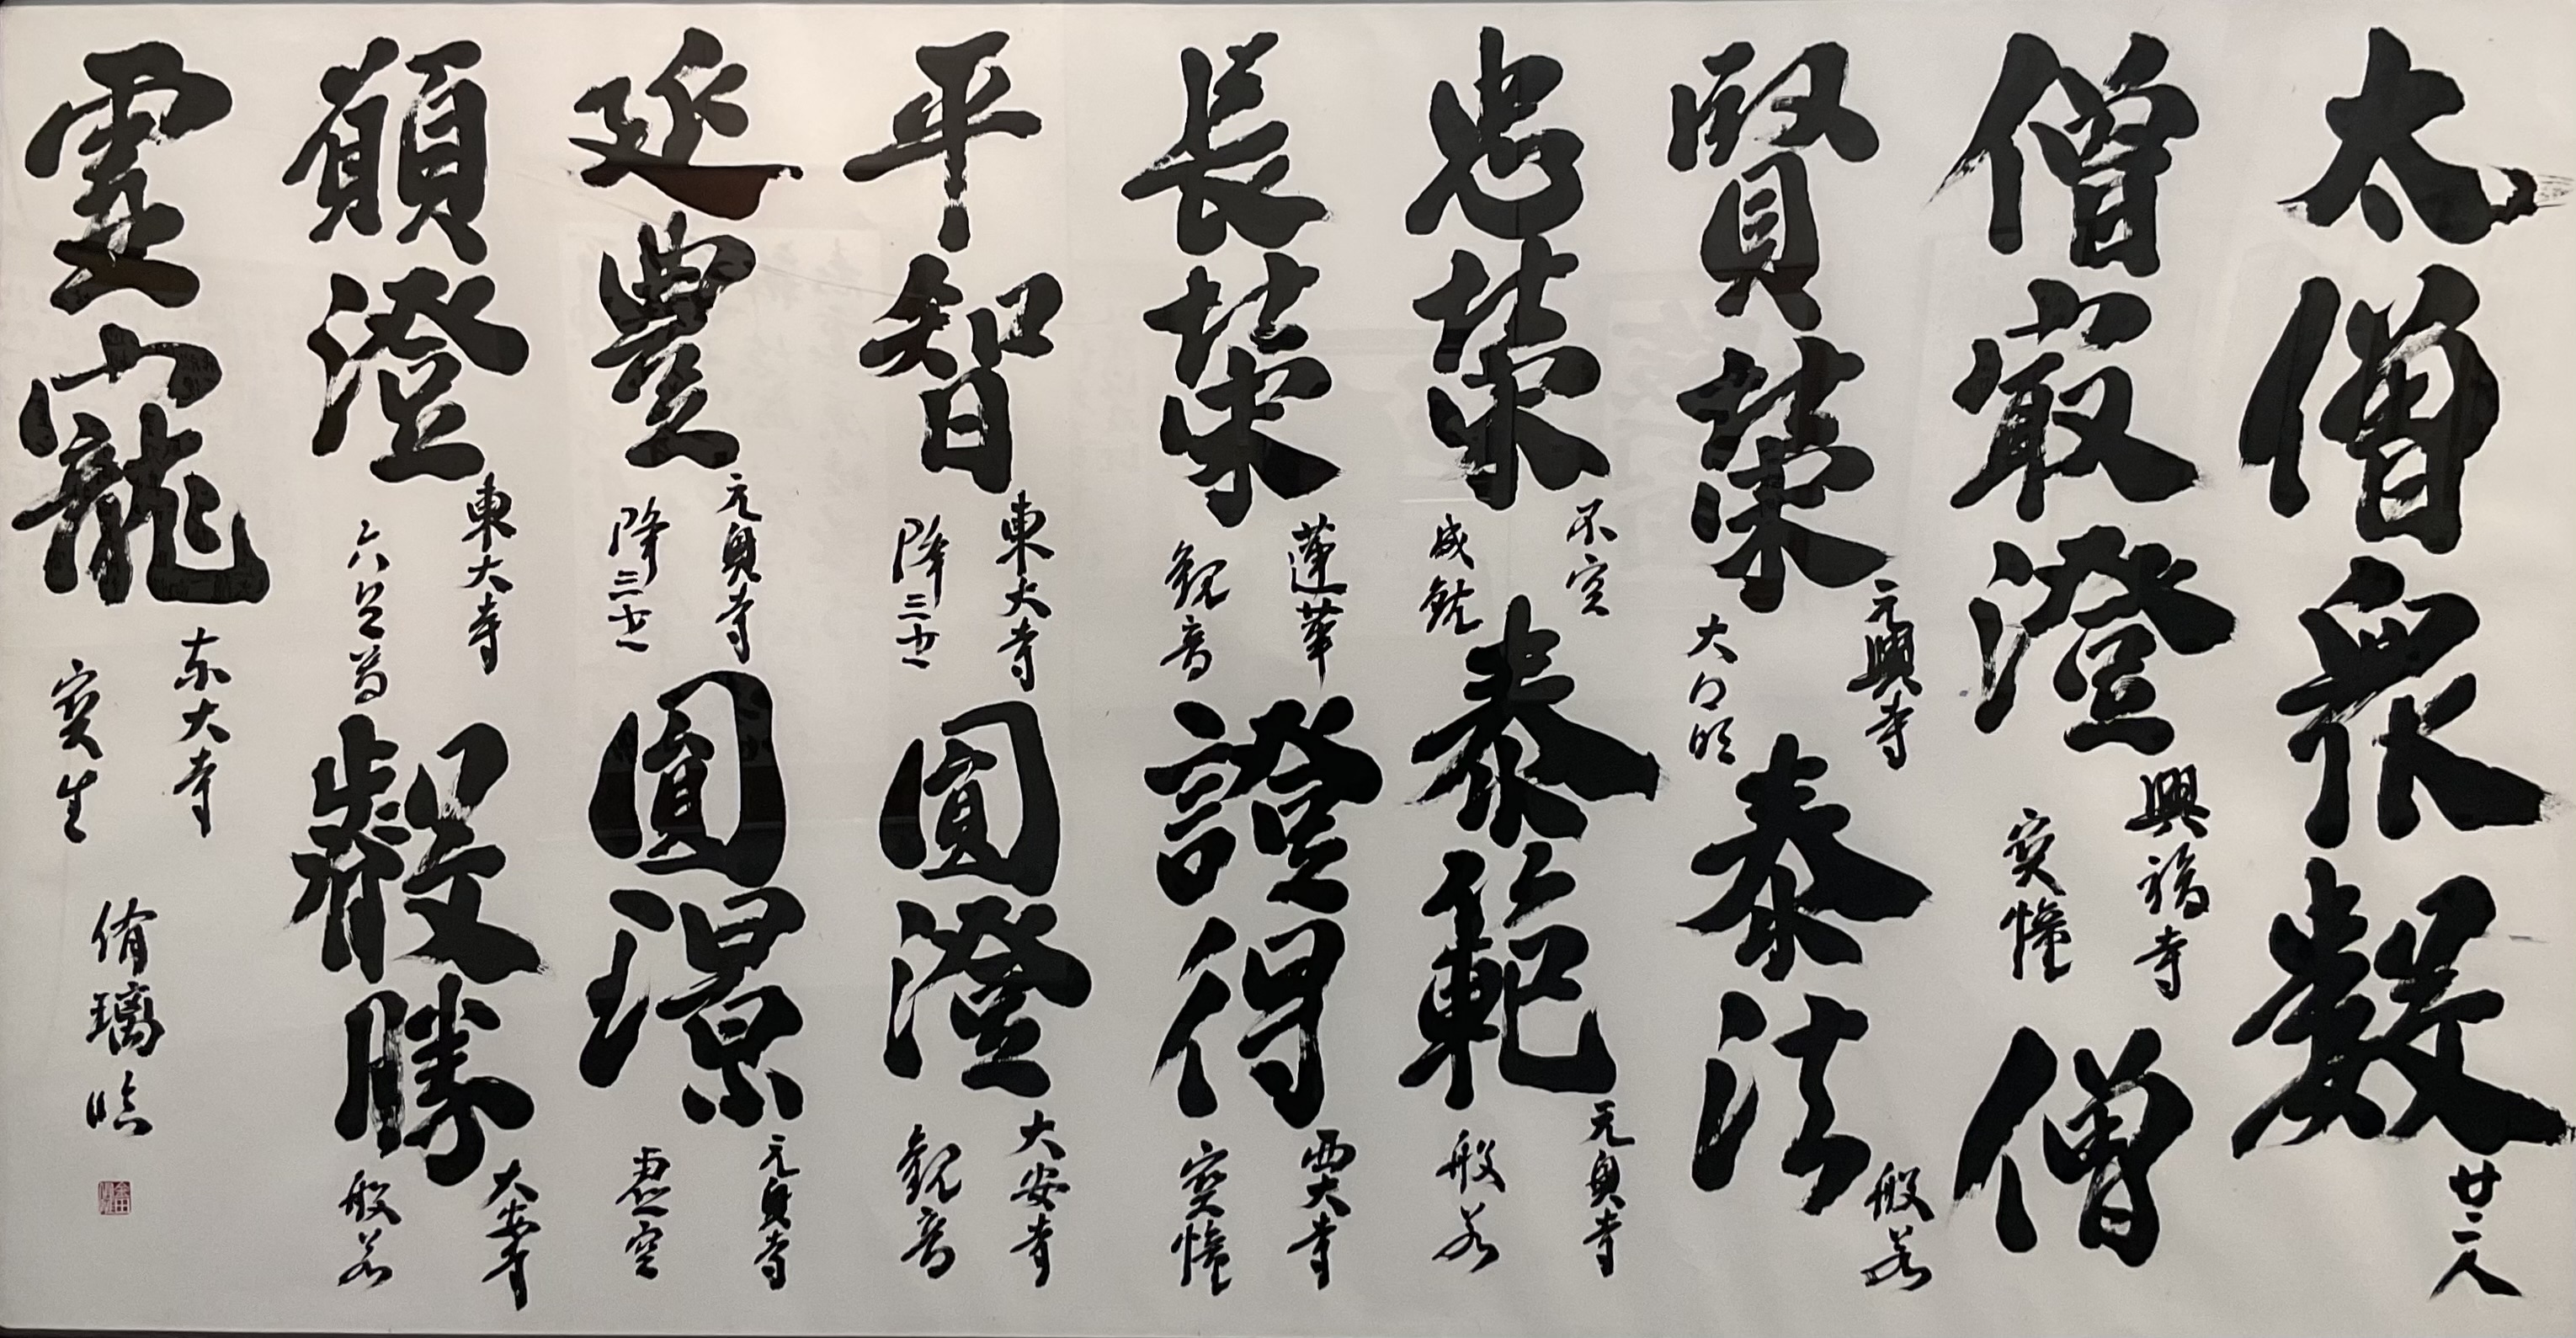 太僧衆数 廿二人
僧最澄 興福寺 宝幢 僧
賢榮 元興寺 大日 泰法 般若
忠榮 不空 成就 泰範 元興寺 般若
長榮 蓮華 観音 證得 西大寺 宝幢
平智 東大寺 降三世 圓澄 大安寺 観音
延豊 元興寺 降三世 圓璟 元興寺 虚空
願澄 東大寺 勝 大安寺 般若
霊寵 東大寺 宝生
侑璃臨